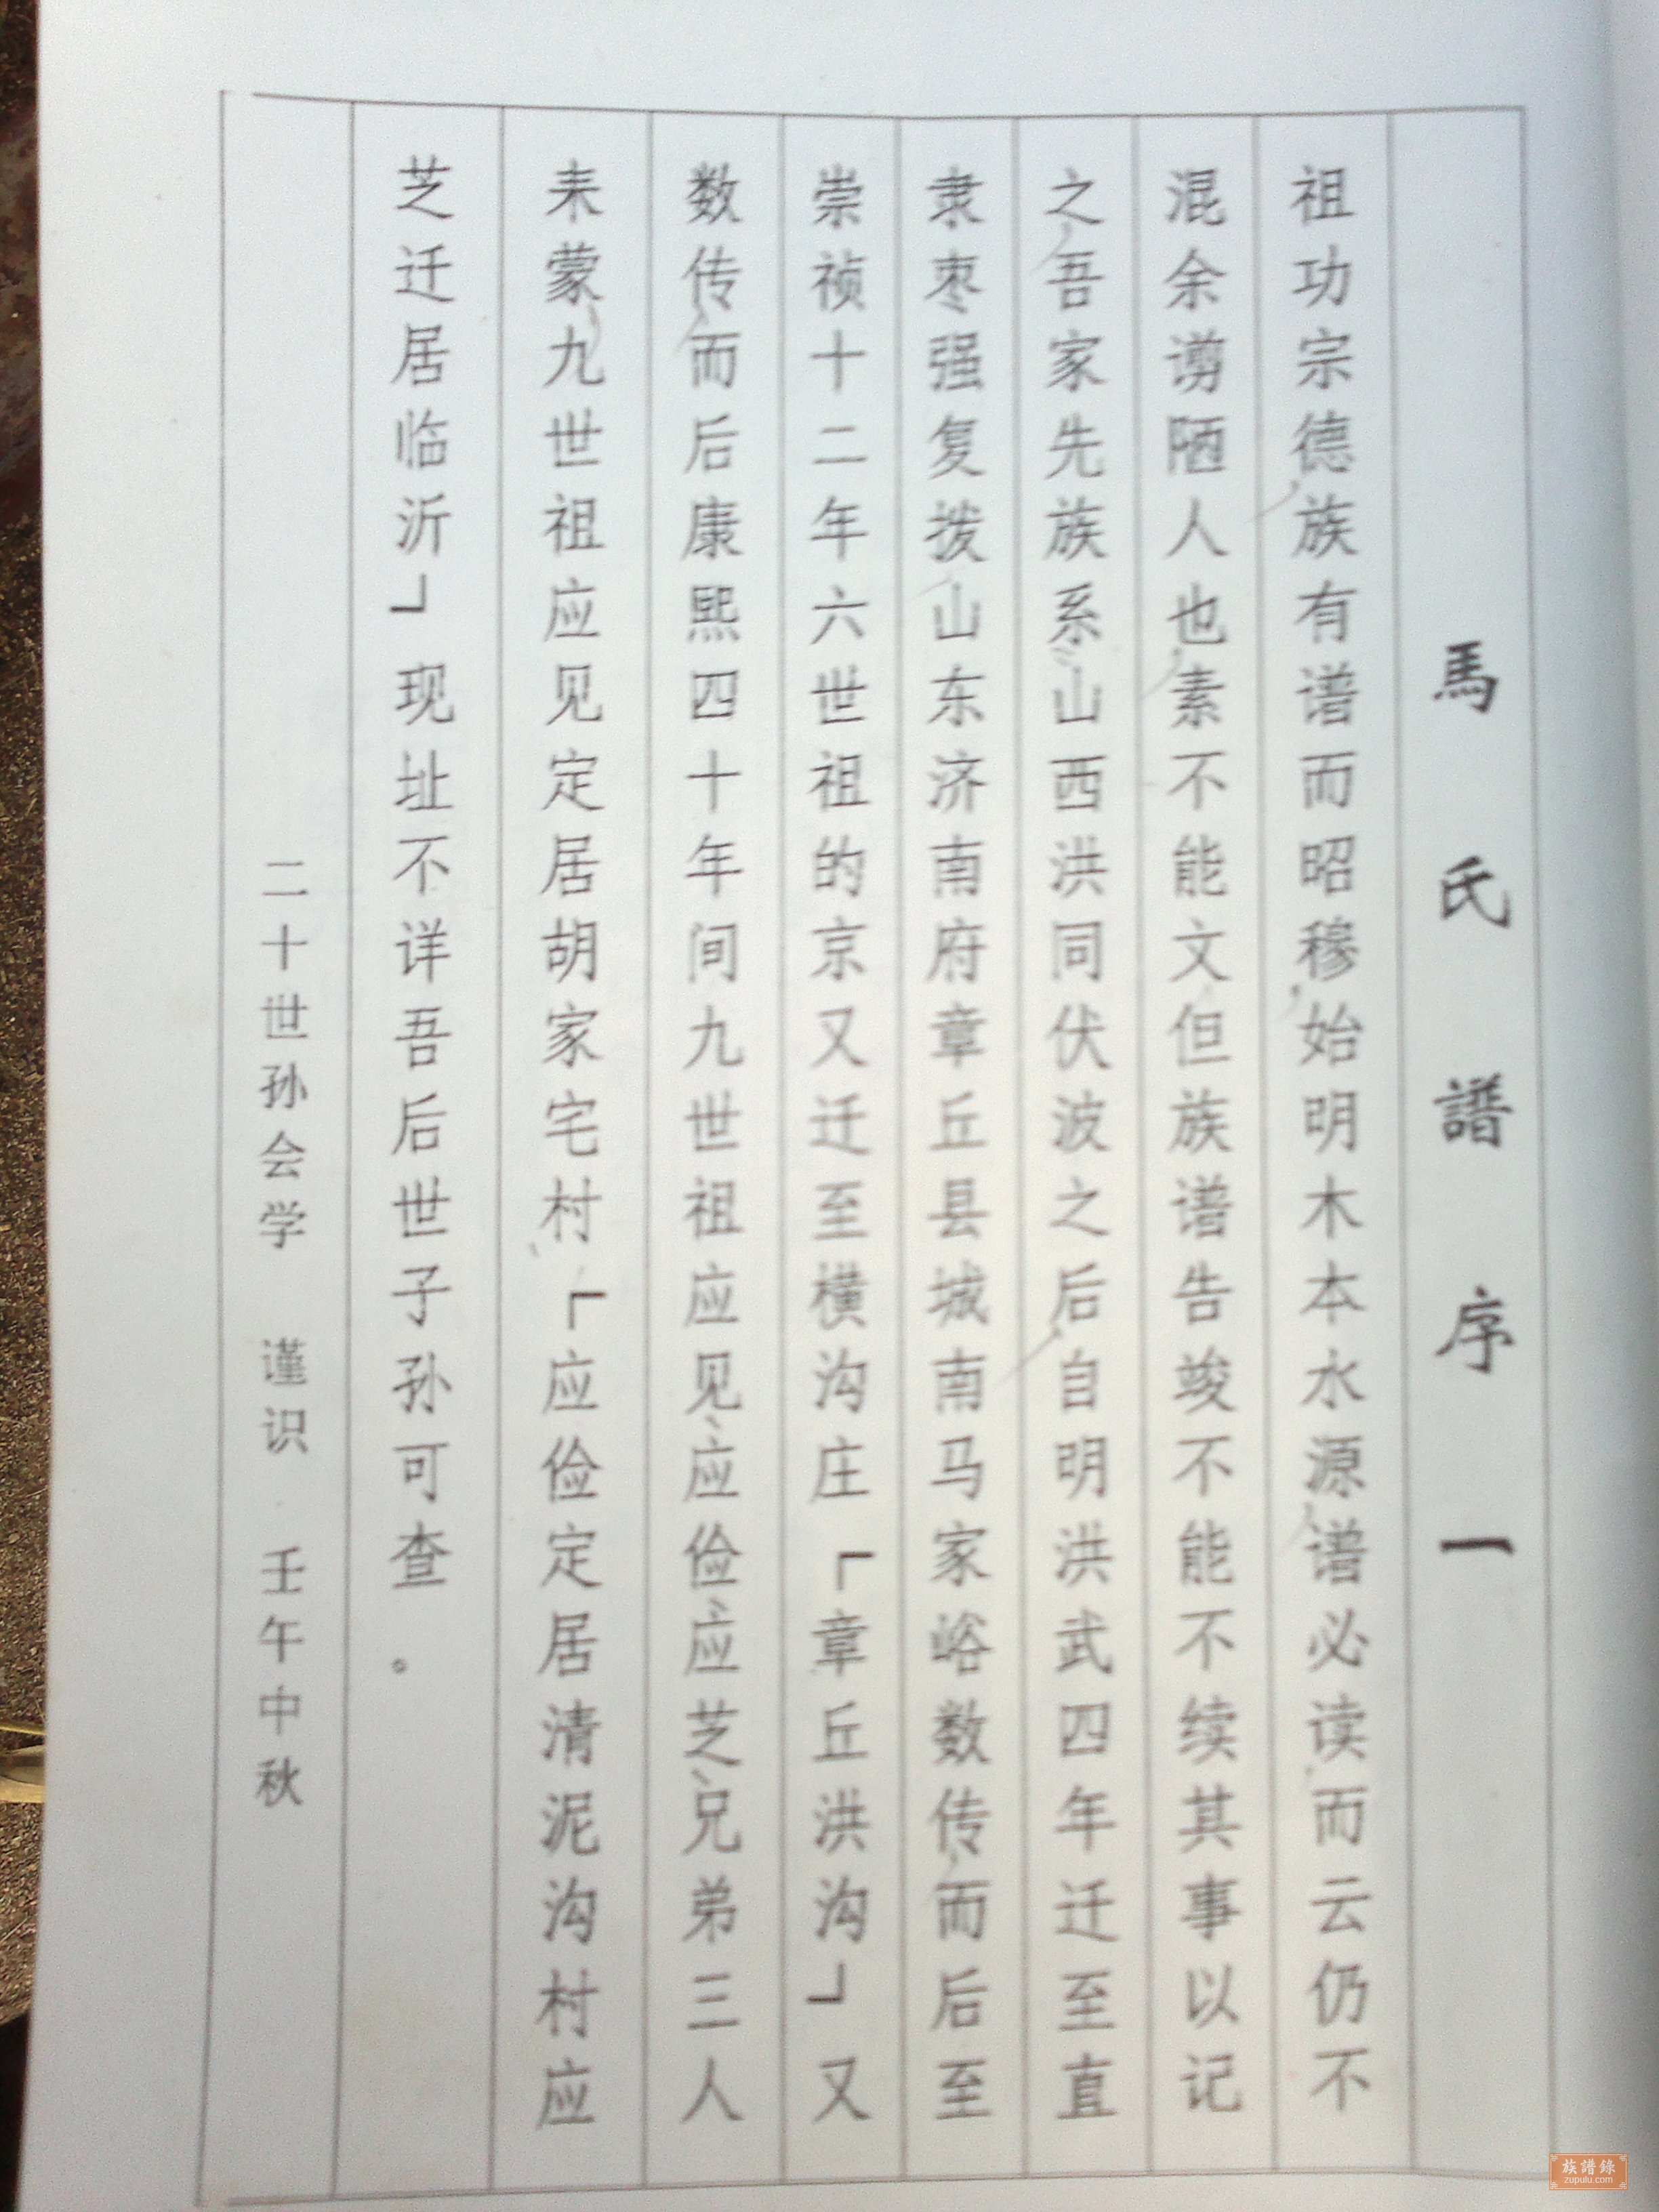 馬氏譜序一
祖功宗德族有谱而昭穆始明木本水源谱必读而云仍不
混余谫陋人也素不能文但族谱告竣不能不续其事以记
之吾家先族系山西洪同伏波之后自明洪武四年迁至直
隶枣强复拨山东济南府章丘县城南马家峪数传而后至
崇祯十二年六世祖的京又迁至横沟庄「章丘洪沟」又
数传而后康熙四十年间九世祖应见、应俭、应芝、兄弟三人
来蒙九世祖应见定居胡家宅村、「应俭定居清泥沟村应
芝迁居临沂」现址不详吾后世子孙可查。
二十世孙会学 谨识 壬午中秋
族譜錄
zupulu.com